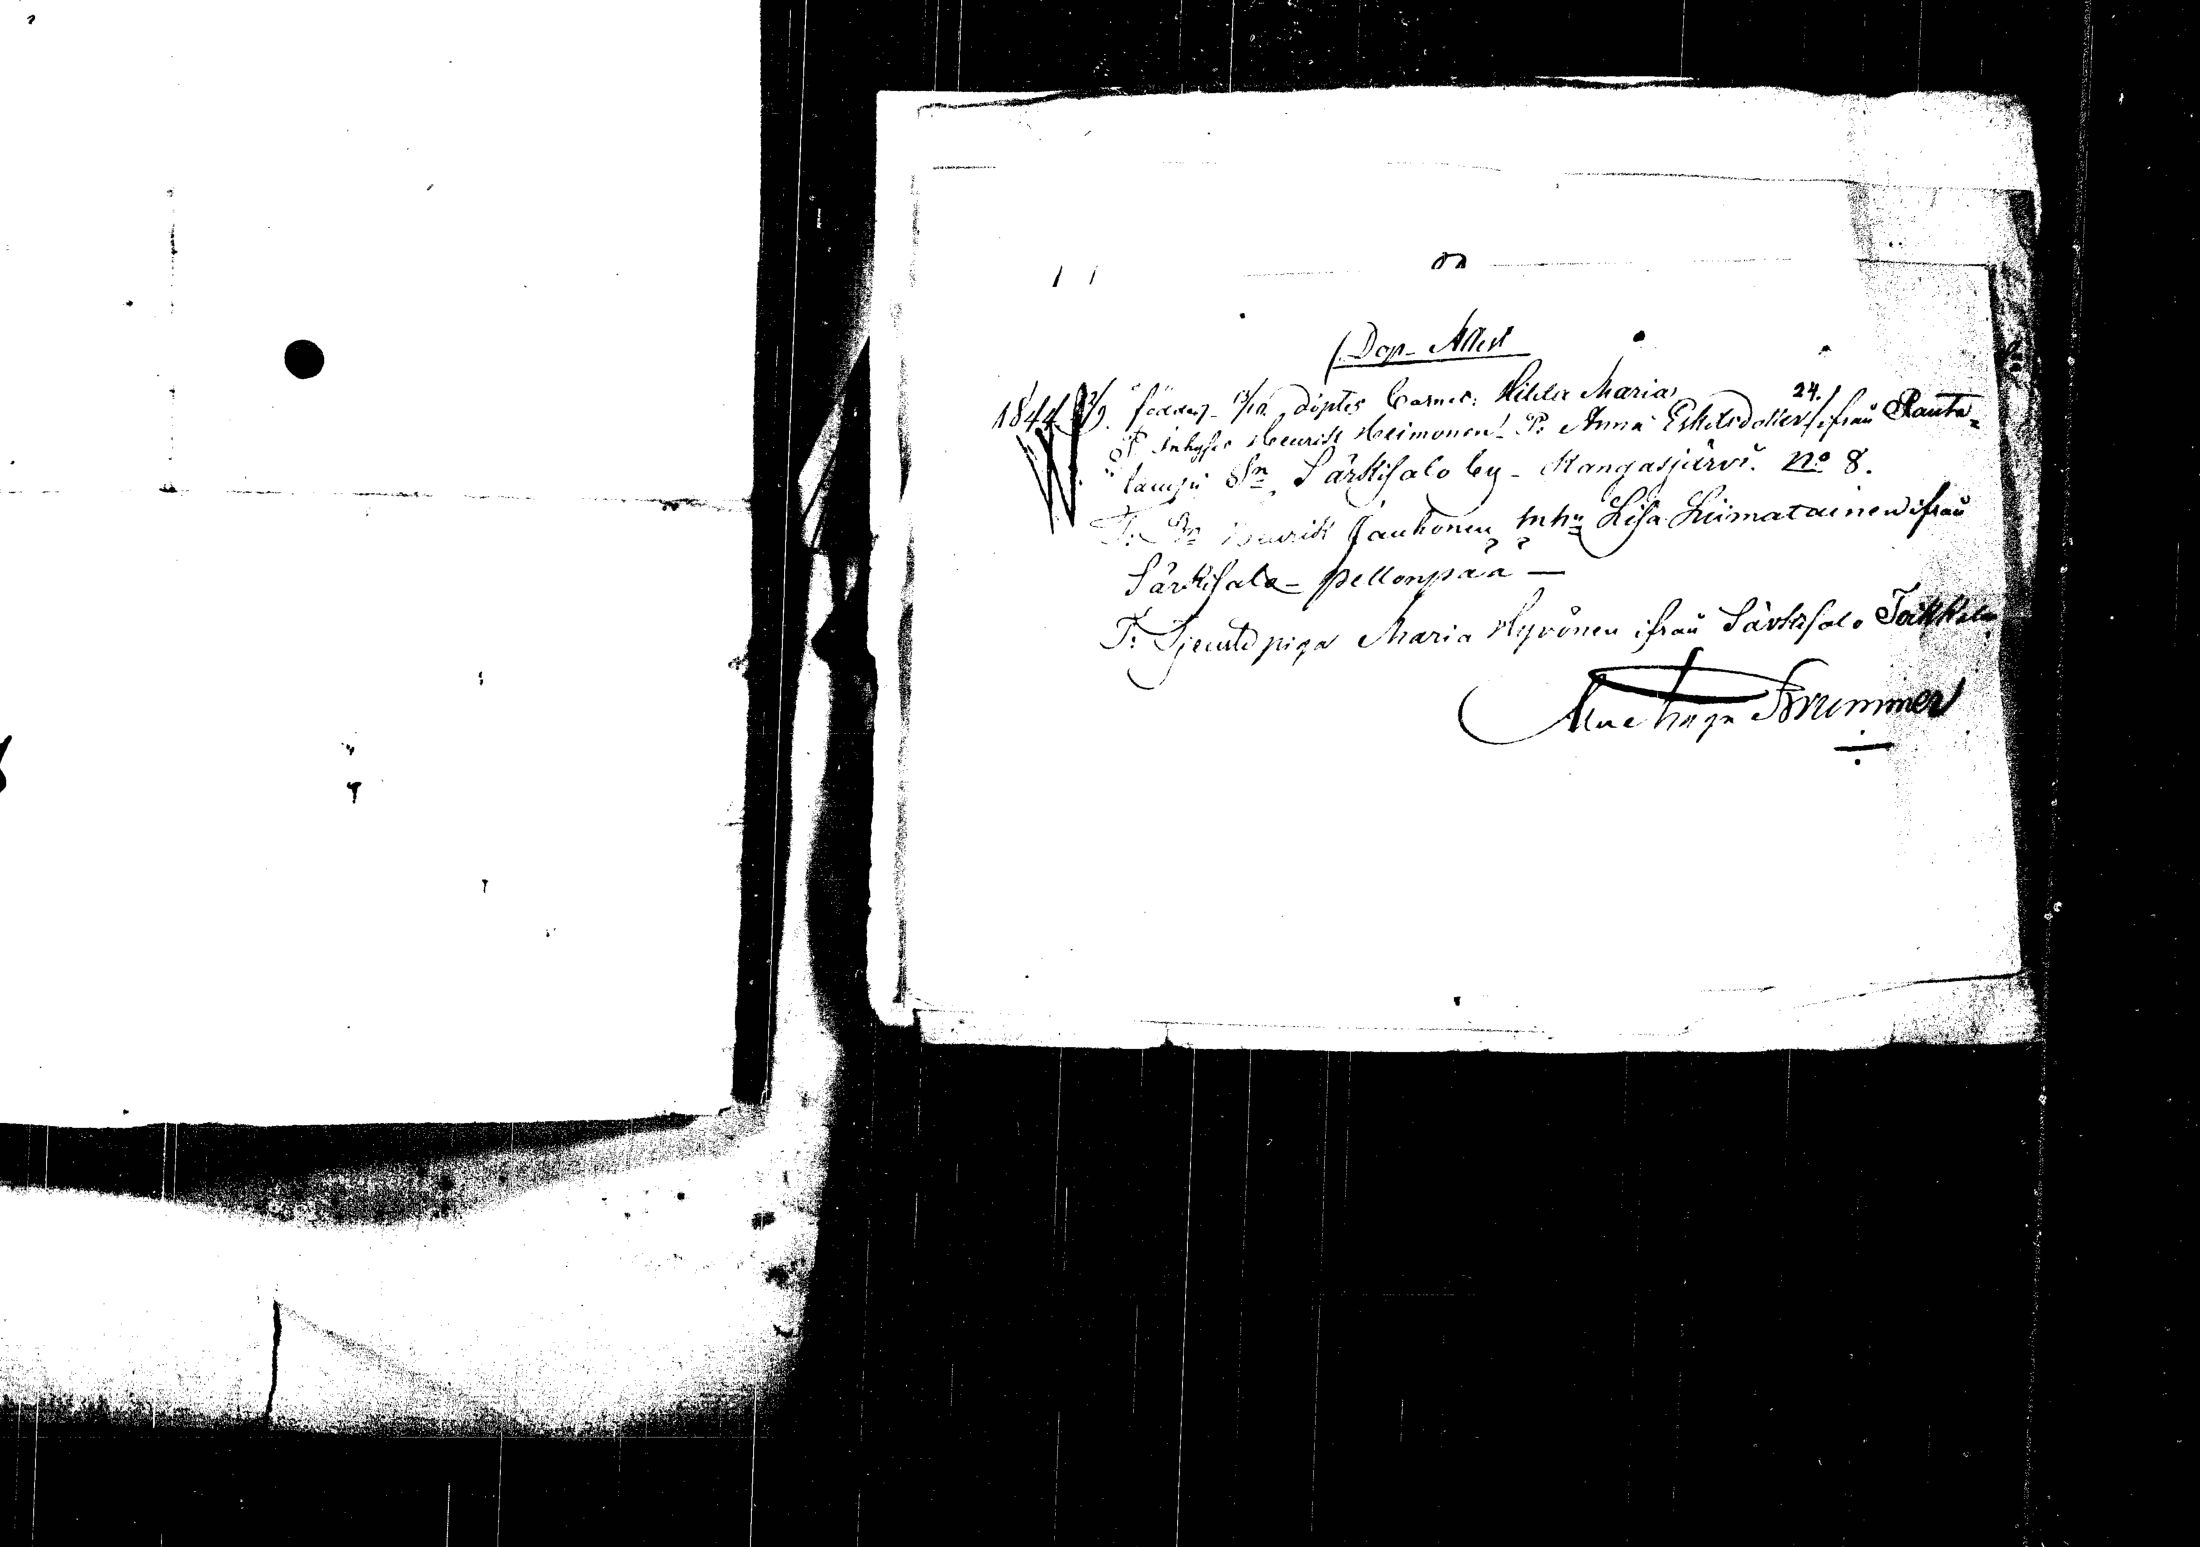 Dop-Attest
1844 föddes 13/10 döptes Barnet: Hilda Maria
F: Inhyses Henrik Heimonen P: Anna Eskelsdotter 24. ifrån Rauta=
lampi Sn Särkisalo by - Kangasjärvi. No 8.
T: Henrik Jauhonen Inhy Lisa Liimatainen ifrån
Särkisalo - Pellonpää —
T: Tjenstepiga Maria Hyvönen ifrån Särkisalo Toikkala
Brummer